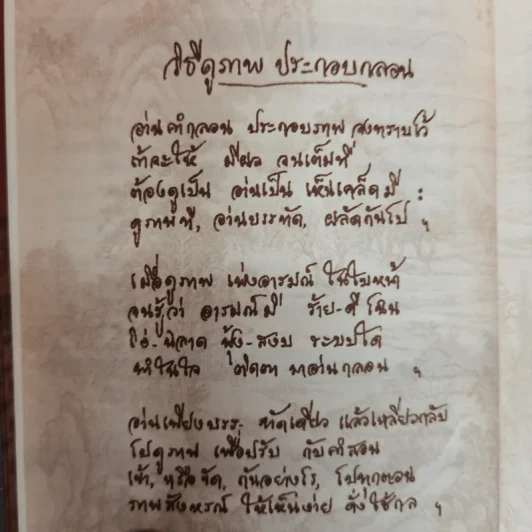 วิธีดูภาพ ประกอบกลอน
อ่านคำกลอน ประกอบภาพ จงทราบไว้
ถ้าจะให้ มีผล จนเต็มที่
ต้องดูเป็น อ่านเป็น เห็นเคล็ดมี :
ดูภาพที, อ่านบรรทัด, ผลัดกันไป ฯ
เมื่อดูภาพ เพ่งอารมณ์ ในใบหน้า
จนรู้ว่า อารมณ์มี ร้าย-ดี ไฉน
โง่-ฉลาด ฟุ้ง-สงบ ระบบใด
ทำในใจ ติดตา มาอ่านกลอน ฯ
อ่านเพียงบรร- ทัดเดียว แล้วเหลียวกลับ
ไปดูภาพ เพื่อปรับ กับคำสอน
เข้า, หรือขัด, กันอย่างไร, ไปทุกตอน
ภาพสังหรณ์ ให้เห็นง่าย ดั่งใช้กล ฯ